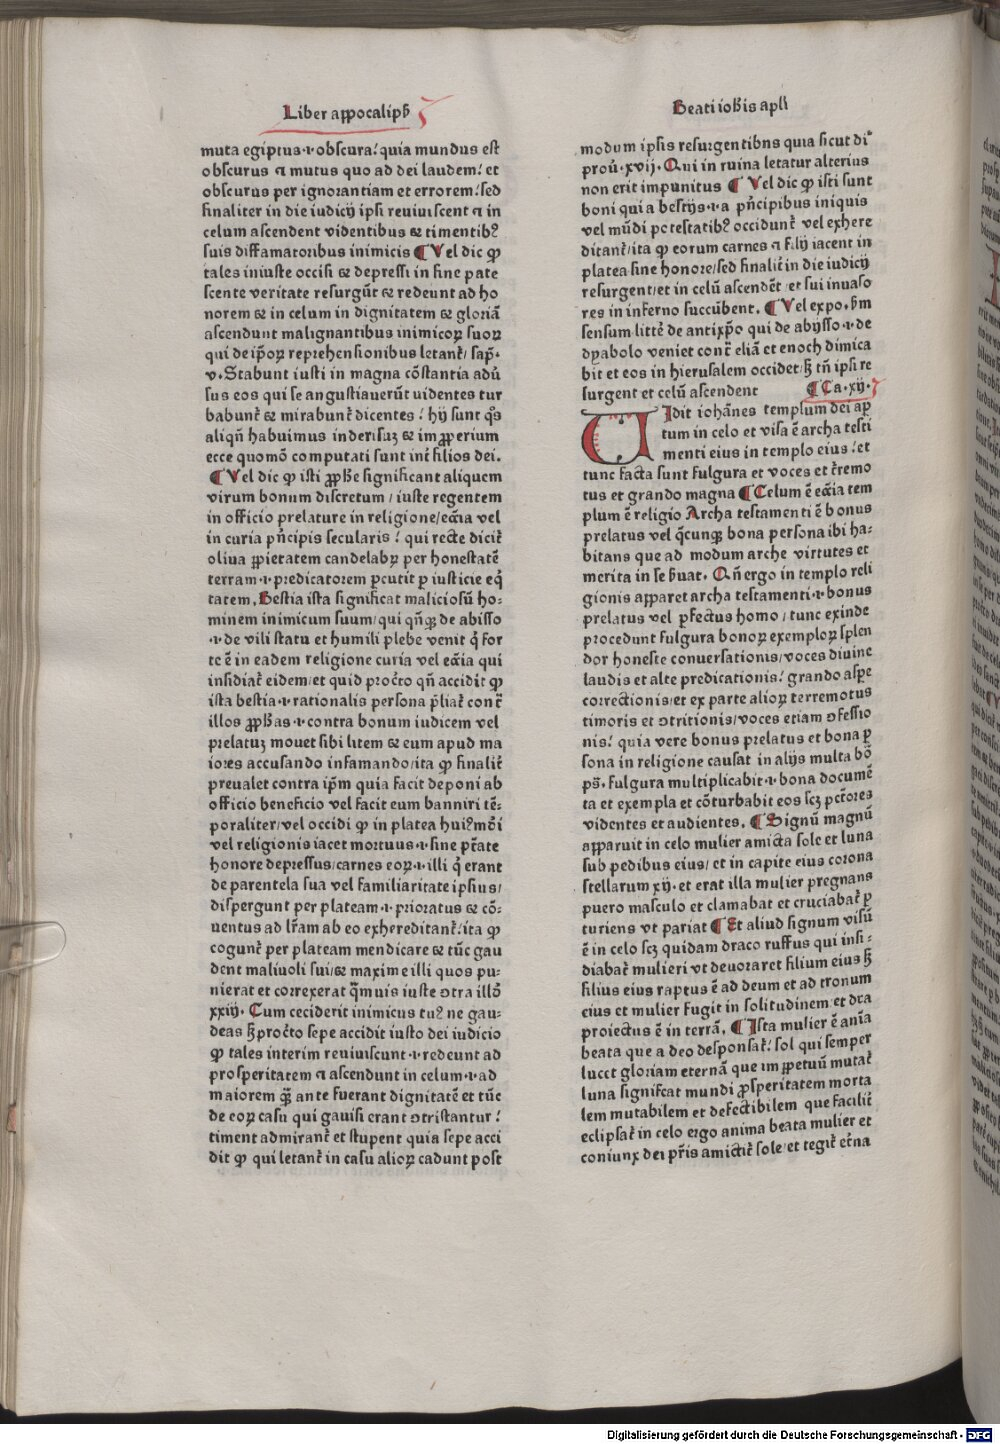 Liber appocalipẜ
muta egiptus·i·obscura: quia mundus est
obscurus ⁊ mutus quo ad dei laudem: et
obscurus per ignorantiam et errorem: sed
finaliter in die iudicij ipsi reuiuiscent ⁊ in
celum ascendent videntibus & timentibꝰ
suis diffamatoribus inimicis ¶ Vel dic ꝙ
tales iniuste occisi & depressi in fine pate
scente veritate resurgūt & redeunt ad ho
norem & in celum in dignitatem & gloriā
ascendunt malignantibus inimicoꝝ suoꝝ
qui de ip̄oꝝ reprehensionibus letant᷑/ sap̄·
v·Stabunt iusti in magna cōstantia adū
sus eos qui se angustiauerūt uidentes tur
babunt᷑ & mirabunt᷑ dicentes: hij sunt q̄s
aliqn̄ habuimus in derisuꝫ & im ꝓperium
ecce quomō computati sunt int᷑ filios dei.
¶ Vel dic ꝙ isti ꝓphe significant aliquem
virum bonum discretum / iuste regentem
in officio prelature in religione/ecc̄ia vel
in curia pn̄cipis secularis: qui recte dicit᷑
oliua ꝓpietatem candelabꝝ per honestatē
terram·i·predicatorem ꝑcutit ꝑ iusticie eq̄
tatem. Bestia ista significat maliciosū ho-
minem inimicum suum/qui qn̄ꝙ de abisso
·i·de vili statu et humili plebe venit q̄ for
te ē in eadem religione curia vel ecc̄ia qui
insidiat᷑ eidem/et quid proc̄to qn̄ accidit ꝙ
ista bestia·i·rationalis persona p̄liat᷑ cont᷑
illos ꝓphas·i·contra bonum iudicem vel
prelatuꝫ mouet sibi litem & eum apud ma
iores accusando infamando/ita ꝙ finalit᷑
preualet contra ip̄m quia facit deponi ab
officio beneficio vel facit eum banniri tē-
poraliter/vel occidi ꝙ in platea huiꝰmōi
vel religionis iacet mortuus·i·sine pr̄ate
honore depressus/carnes eoꝝ·i·illi q̄ erant
de parentela sua vel familiaritate ipsius/
dispergunt per plateam·i·prioratus & cō-
uentus ad lr̄am ab eo exhereditant᷑/ita ꝙ
cogunt᷑ per plateam mendicare & tūc gau
dent maliuoli sui/& maxime illi quos pu-
nierat et correxerat q̄muis iuste ɔtra illō
xxiij. Cum ceciderit inimicus tuꝰ ne gau-
deas ẜ proc̄to sepe accidit iusto dei iudicio
ꝙ tales interim reuiuiscunt·i·redeunt ad
prosperitatem ⁊ ascendunt in celum·i·ad
maiorem q̄ꝫ ante fuerant dignitatē et tūc
de eoꝝ casu qui gauisi erant ɔtristantur:
timent admirant᷑ et stupent quia sepe acci
dit ꝙ qui letant᷑ in casu alioꝝ cadunt post
Beati ioħis apl̄i
modum ipsis resurgentibns quia sicut dr̄
prou̅·xvij·Qui in ruina letatur alterius
non erit impunitus ¶ Vel dic ꝙ isti sunt
boni qui a bestijs·i·a pn̄cipibus iniquis
vel mūdi potestatibꝰ occidunt᷑ vel exhere
ditant᷑/ita ꝙ eorum carnes ⁊ filij iacent in
platea sine honore/sed finalit᷑ in die iudicij
resurgent/et in celū ascendēt/et sui inuaso
res in inferno succūbent. ¶ Vel expo. ẜm
sensum litte᷑ de antixp̄o qui de abysso·i·de
dyabolo veniet cont᷑ eliā et enoch dimica
bit et eos in hierusalem occidet/ẜ tn̄ ipsi re
surgent et celū ascendent ¶ Ca·xij·
UIdit iohānes templum dei aꝑ
tum in celo et visa ē archa testi
menti eius in templo eius: et
tunc facta sunt fulgura et voces et t᷑remo
tus et grando magna ¶ Celum ē ecc̄ia tem
plum ē religio Archa testamenti ē bonus
prelatus vel q̄cunqꝫ bona persona ibi ha-
bitans que ad modum arche virtutes et
merita in se ẜuat. Qn̄ ergo in templo reli
gionis apparet archa testamenti·i·bonus
prelatus vel ꝑfectus homo / tunc exinde
procedunt fulgura bonoꝝ exemploꝝ splen
dor honeste conuersationis/voces diuine
laudis et alte predicationis: grando aspe
correctionis/et ex parte alioꝝ terremotus
timoris et ɔtritionis/voces etiam ɔfessio
nis: quia vere bonus prelatus et bona ꝑ
sona in religione causat in alijs multa bō
ps̄. fulgura multiplicabit·i·bona documē
ta et exempla et cōturbabit eos scꝫ pct̄ores
videntes et audientes. ¶ Signū magnū
apparuit in celo mulier amicta sole et luna
sub pedibus eius/ et in capite eius corona
stellarum xij·et erat illa mulier pregnans
puero masculo et clamabat et cruciabat᷑ ꝑ
turiens vt pariat ¶ Et aliud signum visū
ē in celo scꝫ quidam draco ruffus qui insi-
diabat᷑ mulieri vt deuoraret filium eius ẜ
filius eius raptus ē ad deum et ad tronum
eius et mulier fugit in solitudinem et dra
proiectus ē in terrā. ¶ Ista mulier ē anīa
beata que a deo desponsat᷑: sol qui semper
lucet gloriam eternā que im ꝑpetuū mutat᷑
luna significat mundi ꝓsperitatem morta
lem mutabilem et defectibilem que facilit᷑
eclipsat᷑ in celo ergo anima beata mulier et
coniunx dei pr̄is amictit᷑ sole/et tegit᷑ et᷑na
Digitalisierung gefördert durch die Deutsche Forschungsgemeinschaft - DFG